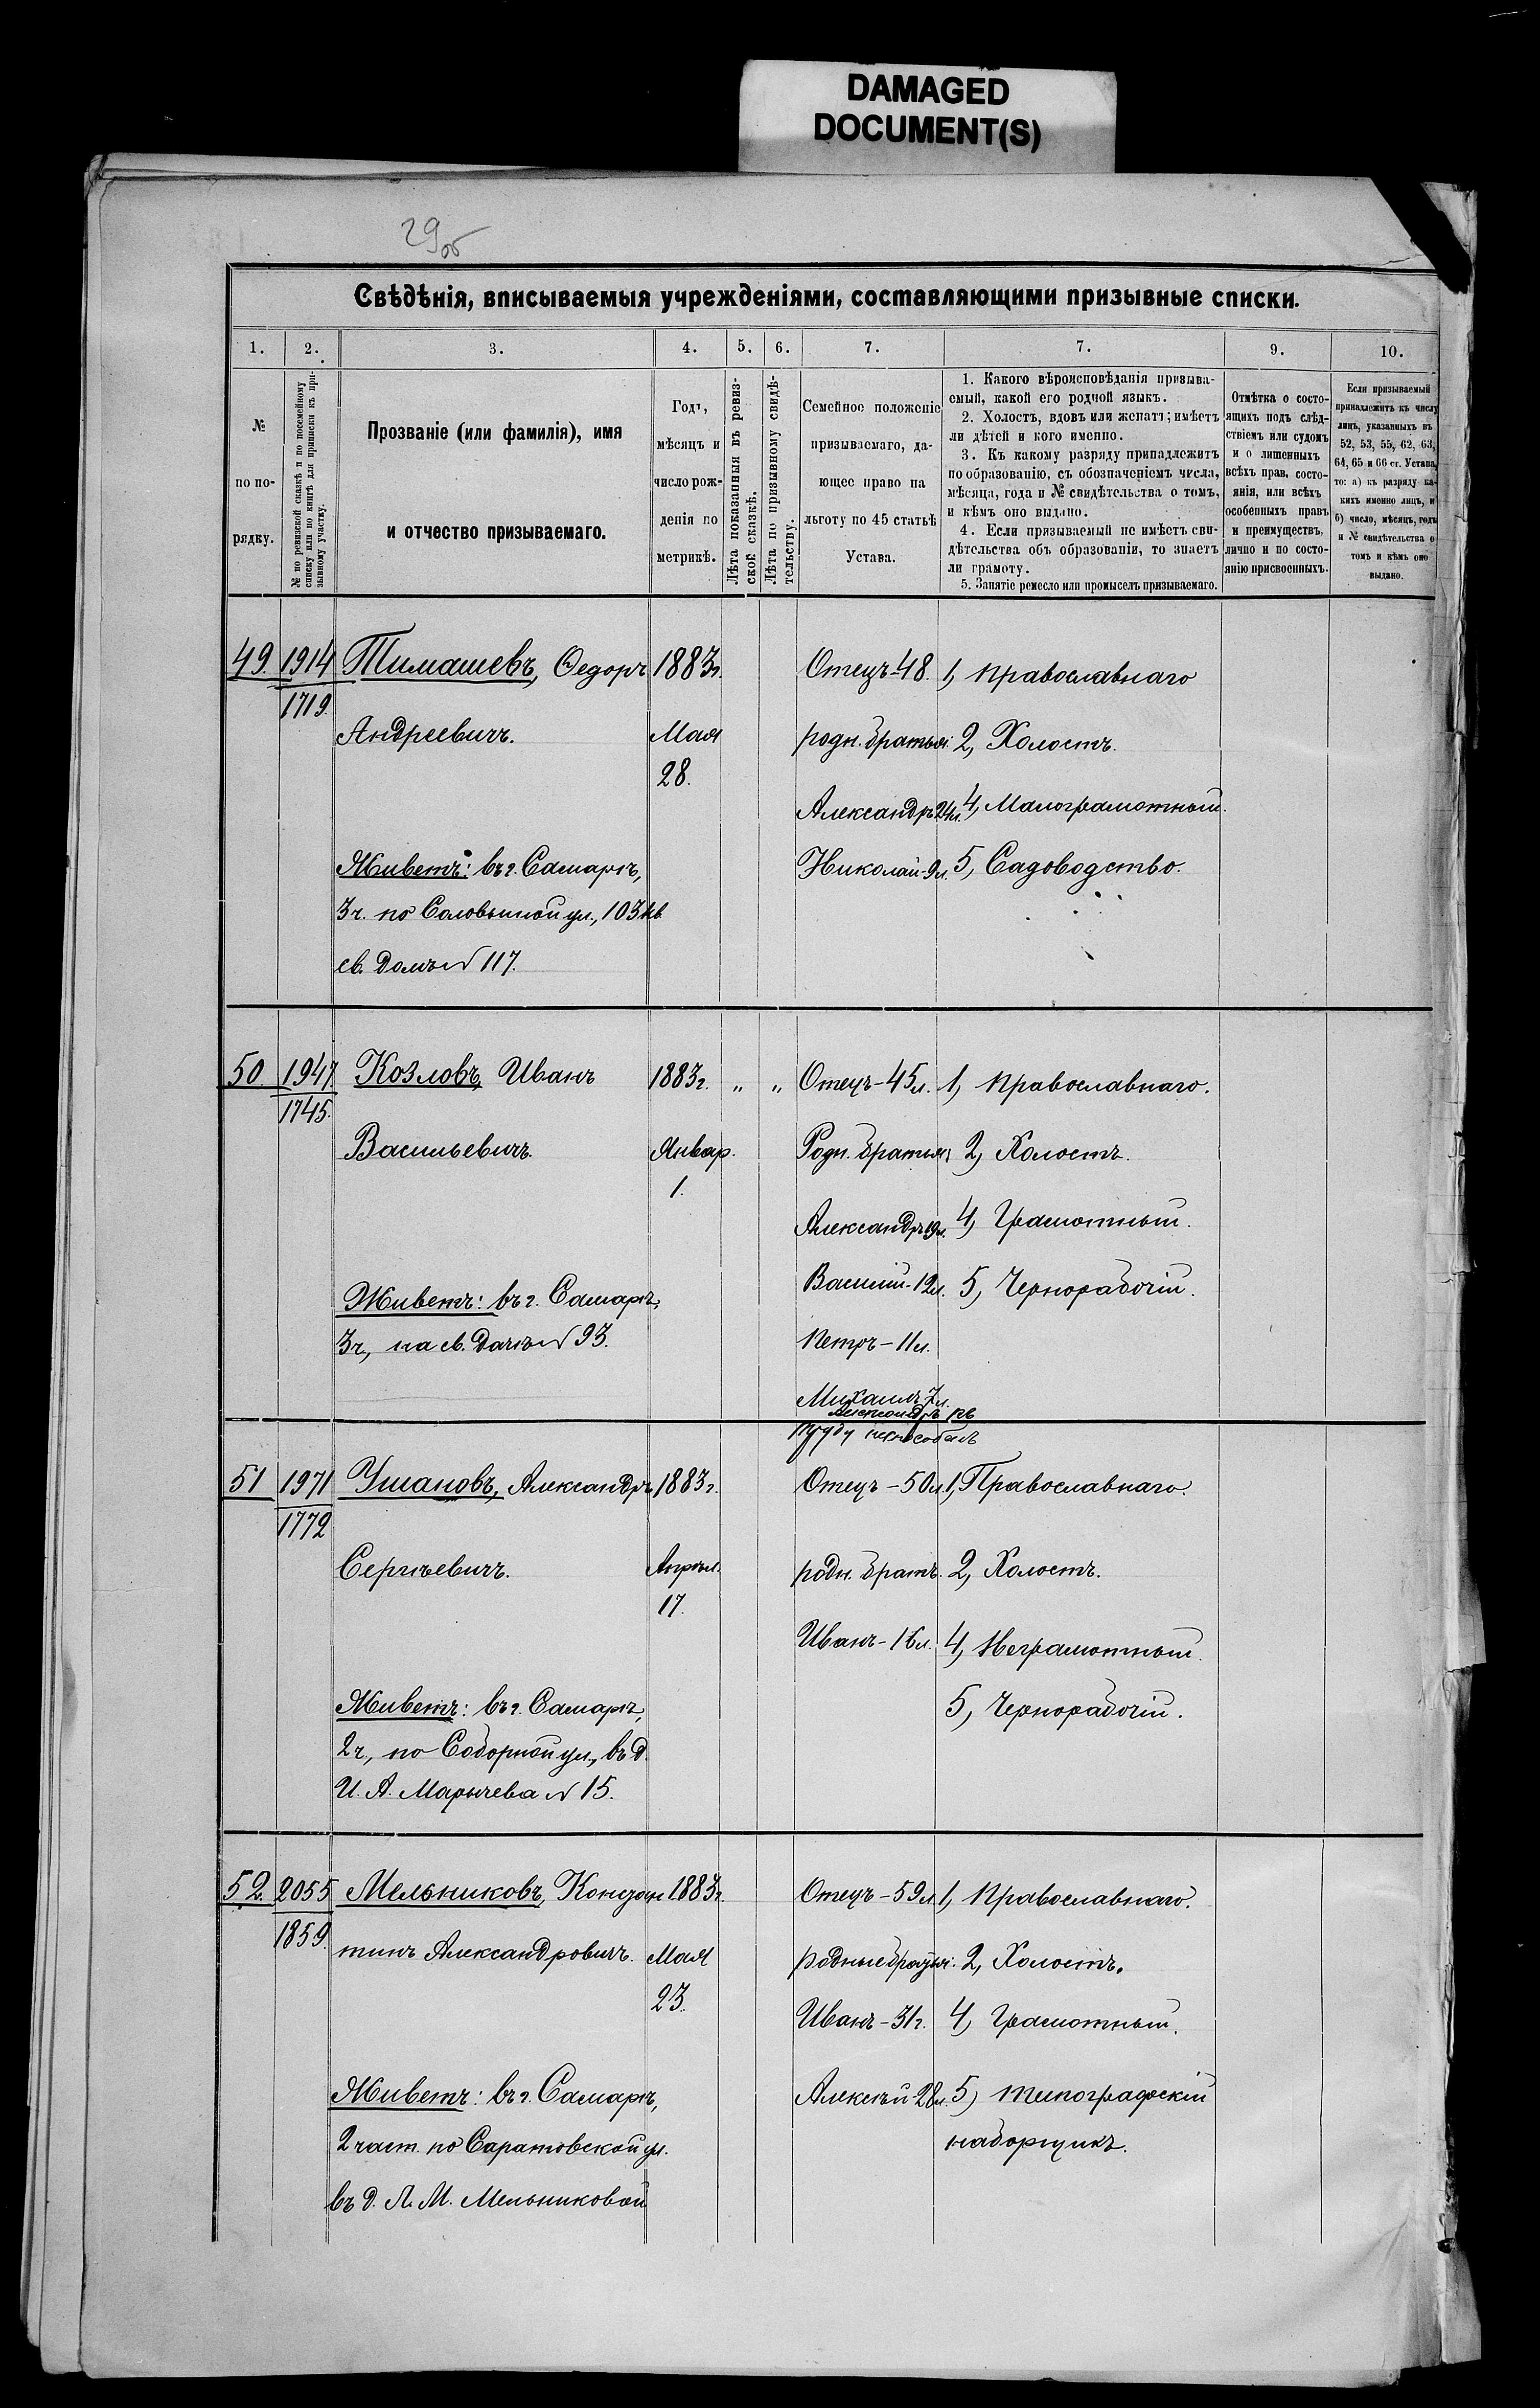 DAMAGED
DOCUMENT(S)
29об
Свѣдѣнія, вписываемыя учрежденіями, составляющими призывные списки.
1. 2. 3. 4. 5. 6. 7. 7. 9. 10.
№
по по-
рядку.
№ по ревизской сказкѣ и по посемейному
списку или по книгѣ для приписки къ при-
зывному участку.
Прозваніе (или фамилія), имя
и отчество призываемаго.
Годъ,
мѣсяцъ и
число рож-
денія по
метрикѣ.
Лѣта показанныя въ ревиз-
ской сказкѣ.
Лѣта по призывному свидѣ-
тельству.
Семейное положеніе
призываемаго, да-
ющее право на
льготу по 45 статьѣ
Устава.
1. Какого вѣроисповѣданія призыва-
емый, какой его родной языкъ.
2. Холостъ, вдовъ или женатъ; имѣетъ
ли дѣтей и кого именно.
3. Къ какому разряду принадлежитъ
по образованію, съ обозначеніемъ числа,
мѣсяца, года и № свидѣтельства о томъ,
и кѣмъ оно выдано.
4. Если призываемый не имѣетъ сви-
дѣтельства объ образованіи, то знаетъ
ли грамоту.
5. Занятіе ремесло или промыселъ призываемаго.
Отмѣтка о состо-
ящихъ подъ слѣд-
ствіемъ или судомъ
и о лишенныхъ
всѣхъ прав, состо-
янія, или всѣхъ
особенныхъ правъ
и преимуществъ,
лично и по состо-
янію присвоенныхъ.
Если призываемый
принадлежитъ къ числу
лицъ, указанныхъ въ
52, 53, 55, 62, 63,
64, 65 и 66 ст. Устава,
то: а) къ разряду ка-
кихъ именно лицъ, и
б) число, мѣсяцъ, годъ
и № свидѣтельства о
томъ и кѣмъ оно
выдано.
49. 1914 Тимашевъ, Ѳедоръ 1883г. Отецъ-48. 1, Православнаго
1719.
Андреевичъ. Мая родн. братья: 2, Холостъ.
28.
Александръ 24л. 4, Малограмотный.
Живетъ: въ г. Самарѣ, Николай-9л. 5, Садоводство.
3ч. по Соловьиной ул., 103 кв.
св. домъ № 117.
50. 1947 Козловъ Иванъ 1883г. „ „ Отецъ-45л. 1, Православнаго.
1745.
Васильевичъ. Январ. Родн. братья; 2, Холостъ.
1.
Александръ 19л. 4, Грамотный.
Живетъ: въ г. Самарѣ, Василій-12л. 5, Чернорабочій.
3ч, на св. дачѣ № 93. Петръ-11л.
Михаилъ 7л.
Александръ къ
труду неспособенъ
51 1971 Ушановъ, Александръ 1883г. Отецъ-50л. 1, Православнаго.
1772
Сергѣевичъ. Апрѣл. родн. братъ. 2, Холостъ.
17.
Иванъ-16л. 4, Неграмотный.
Живетъ: въ г. Самарѣ, 5, Чернорабочій.
2ч., по Соборной ул., въ д.
И. А. Марычева № 15.
52. 2055 Мельниковъ, Констан 1883г. Отецъ-59л. 1, Православнаго.
1859.
тинъ Александровичъ. Мая родные братья: 2, Холостъ.
23.
Иванъ-31г. 4, Грамотный.
Живетъ: въ г. Самарѣ, Алексѣй-28л. 5) Типографскій
2 част. по Саратовской ул. наборщикъ.
въ д. Л. М. Мельниковой